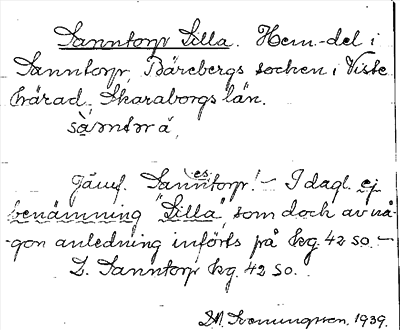 Sanntorp Lilla. Hem-del i
Sanntorp, Bärebergs socken i Viste
härad, Skaraborgs län.
sàntərà,
Jämf. Sannestorp! – I dagl. ej
benämning "Lilla", som doch av nå-
-gon anledning införts på kg. 42 so. –
L. Sanntorp kg. 42 so.
D.M. Svenningsson, 1939.